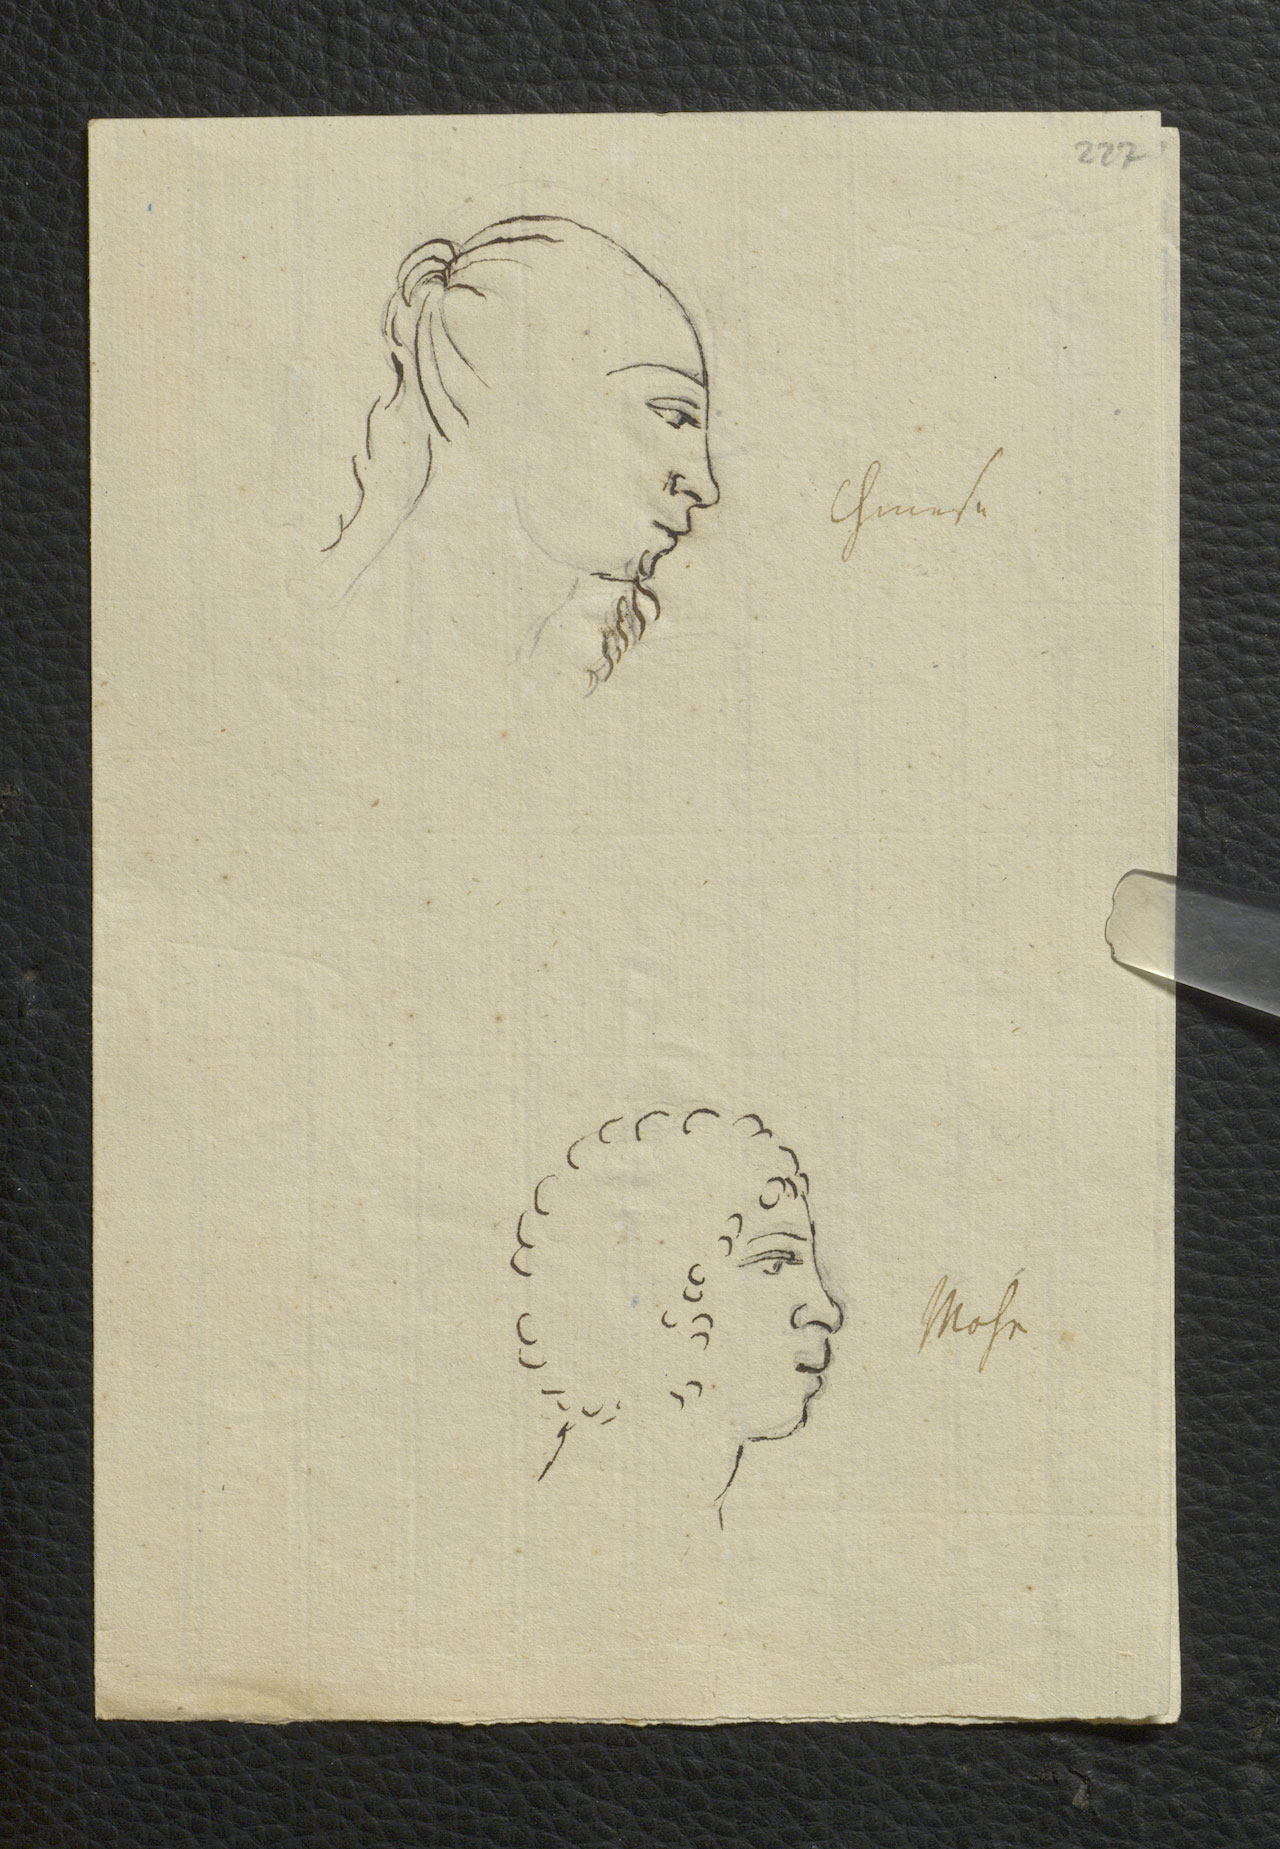 227
Chinese
Mohr